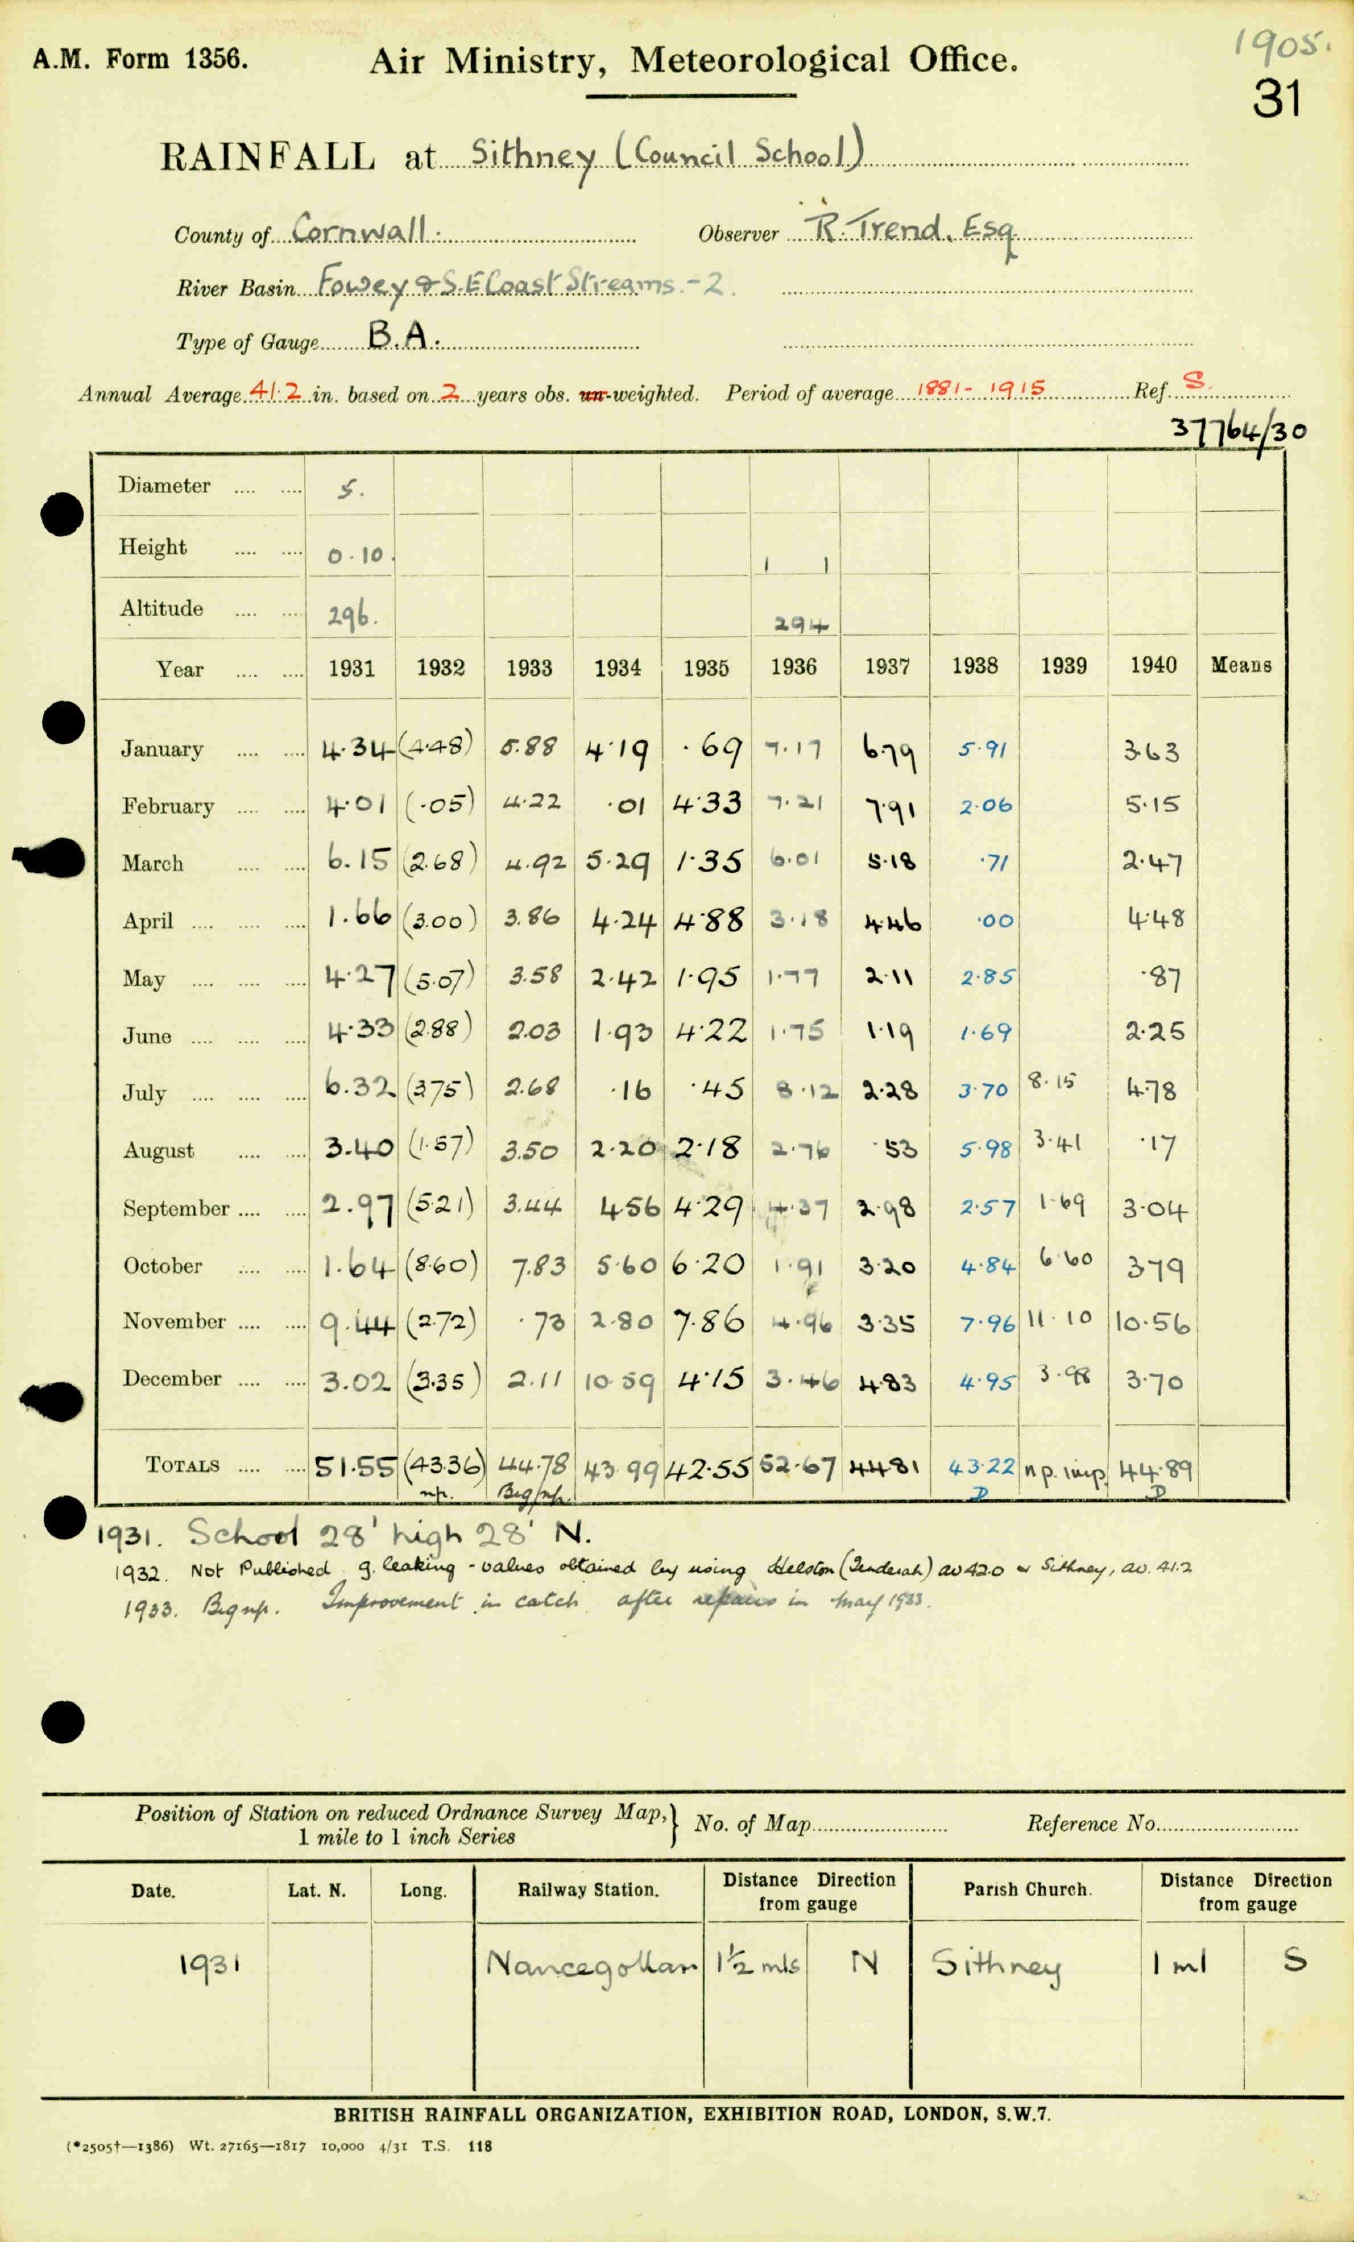 1905.
A.M. Form 1356. Air Ministry, Meteorological Office.
31
RAINFALL at Sithney (Council School)
County of Cornwall. Observer R. Trend, Esq
River Basin Fowey & S.E Coast Streams. - 2.
Type of Gauge B.A.
Annual Average 41.2 in. based on 2 years obs. un-weighted. Period of average 1881 - 1915 Ref. S.
37764/30
Diameter .... .... 5.
Height .... .... 0.10. 1 1
Altitude .... .... 296. 294
Year .... .... 1931 1932 1933 1934 1935 1936 1937 1938 1939 1940 Means
January .... .... 4.34 (4.48) 5.88 4.19 .69 7.17 6.79 5.91 3.63
February .... .... 4.01 (.05) 4.22 .01 4.33 7.21 7.91 2.06 5.15
March .... .... 6.15 (2.68) 4.92 5.29 1.35 6.01 5.18 .71 2.47
April .... .... .... 1.66 (3.00) 3.86 4.24 4.88 3.18 4.46 .00 4.48
May .... .... .... 4.27 (5.07) 3.58 2.42 1.95 1.77 2.11 2.85 .87
June .... .... .... 4.33 (2.88) 2.03 1.93 4.22 1.75 1.19 1.69 2.25
July .... .... .... 6.32 (3.75) 2.68 .16 .45 8.12 2.28 3.70 8.15 4.78
August .... .... 3.40 (1.57) 3.50 2.20 2.18 2.76 .53 5.98 3.41 .17
September .... .... 2.97 (5.21) 3.44 4.56 4.29 4.37 2.98 2.57 1.69 3.04
October .... .... 1.64 (8.60) 7.83 5.60 6.20 1.91 3.20 4.84 6.60 3.79
November .... .... 9.44 (2.72) .73 2.80 7.86 4.96 3.35 7.96 11.10 10.56
December .... .... 3.02 (3.35) 2.11 10.59 4.15 3.46 4.83 4.95 3.98 3.70
TOTALS .... .... 51.55 (43.36) 44.78 43.99 42.55 52.67 44.81 43.22 n.p. imp. 44.89
n.p. Brg/n.p. D D
1931. School 28' high 28' N.
1932. Not Published g. leaking - values obtained by using Helston av 42.0 Sithney, av. 41.2
1933. Brg n.p. Improvement in catch after repairs in May 1933.
Position of Station on reduced Ordnance Survey Map, } No. of Map Reference No.
1 mile to 1 inch Series
Date. Lat. N. Long. Railway Station. Distance Direction from gauge Parish Church. Distance Direction from gauge
1931 Nancegollan 1½ mls N Sithney 1 ml S
BRITISH RAINFALL ORGANIZATION, EXHIBITION ROAD, LONDON, S.W.7.
(*2505†—1386) Wt. 27165—1817 10,000 4/31 T.S. 118